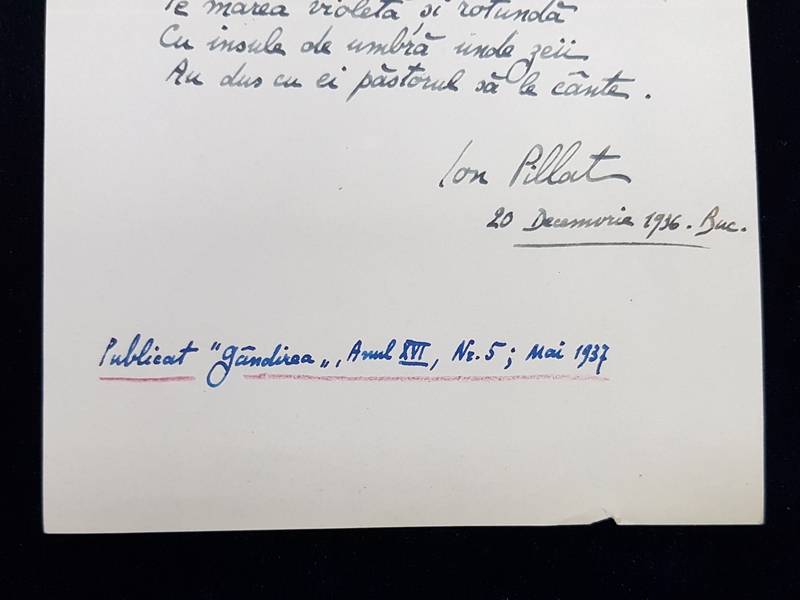 Pe marea violetă și rotundă
Cu insule de umbră unde zeii
Au dus cu ei păstorul să le cânte.
Ion Pillat
20 Decemvrie 1936. Buc.
Publicat "Gândirea„, Anul XVI, Nr. 5; Mai 1937